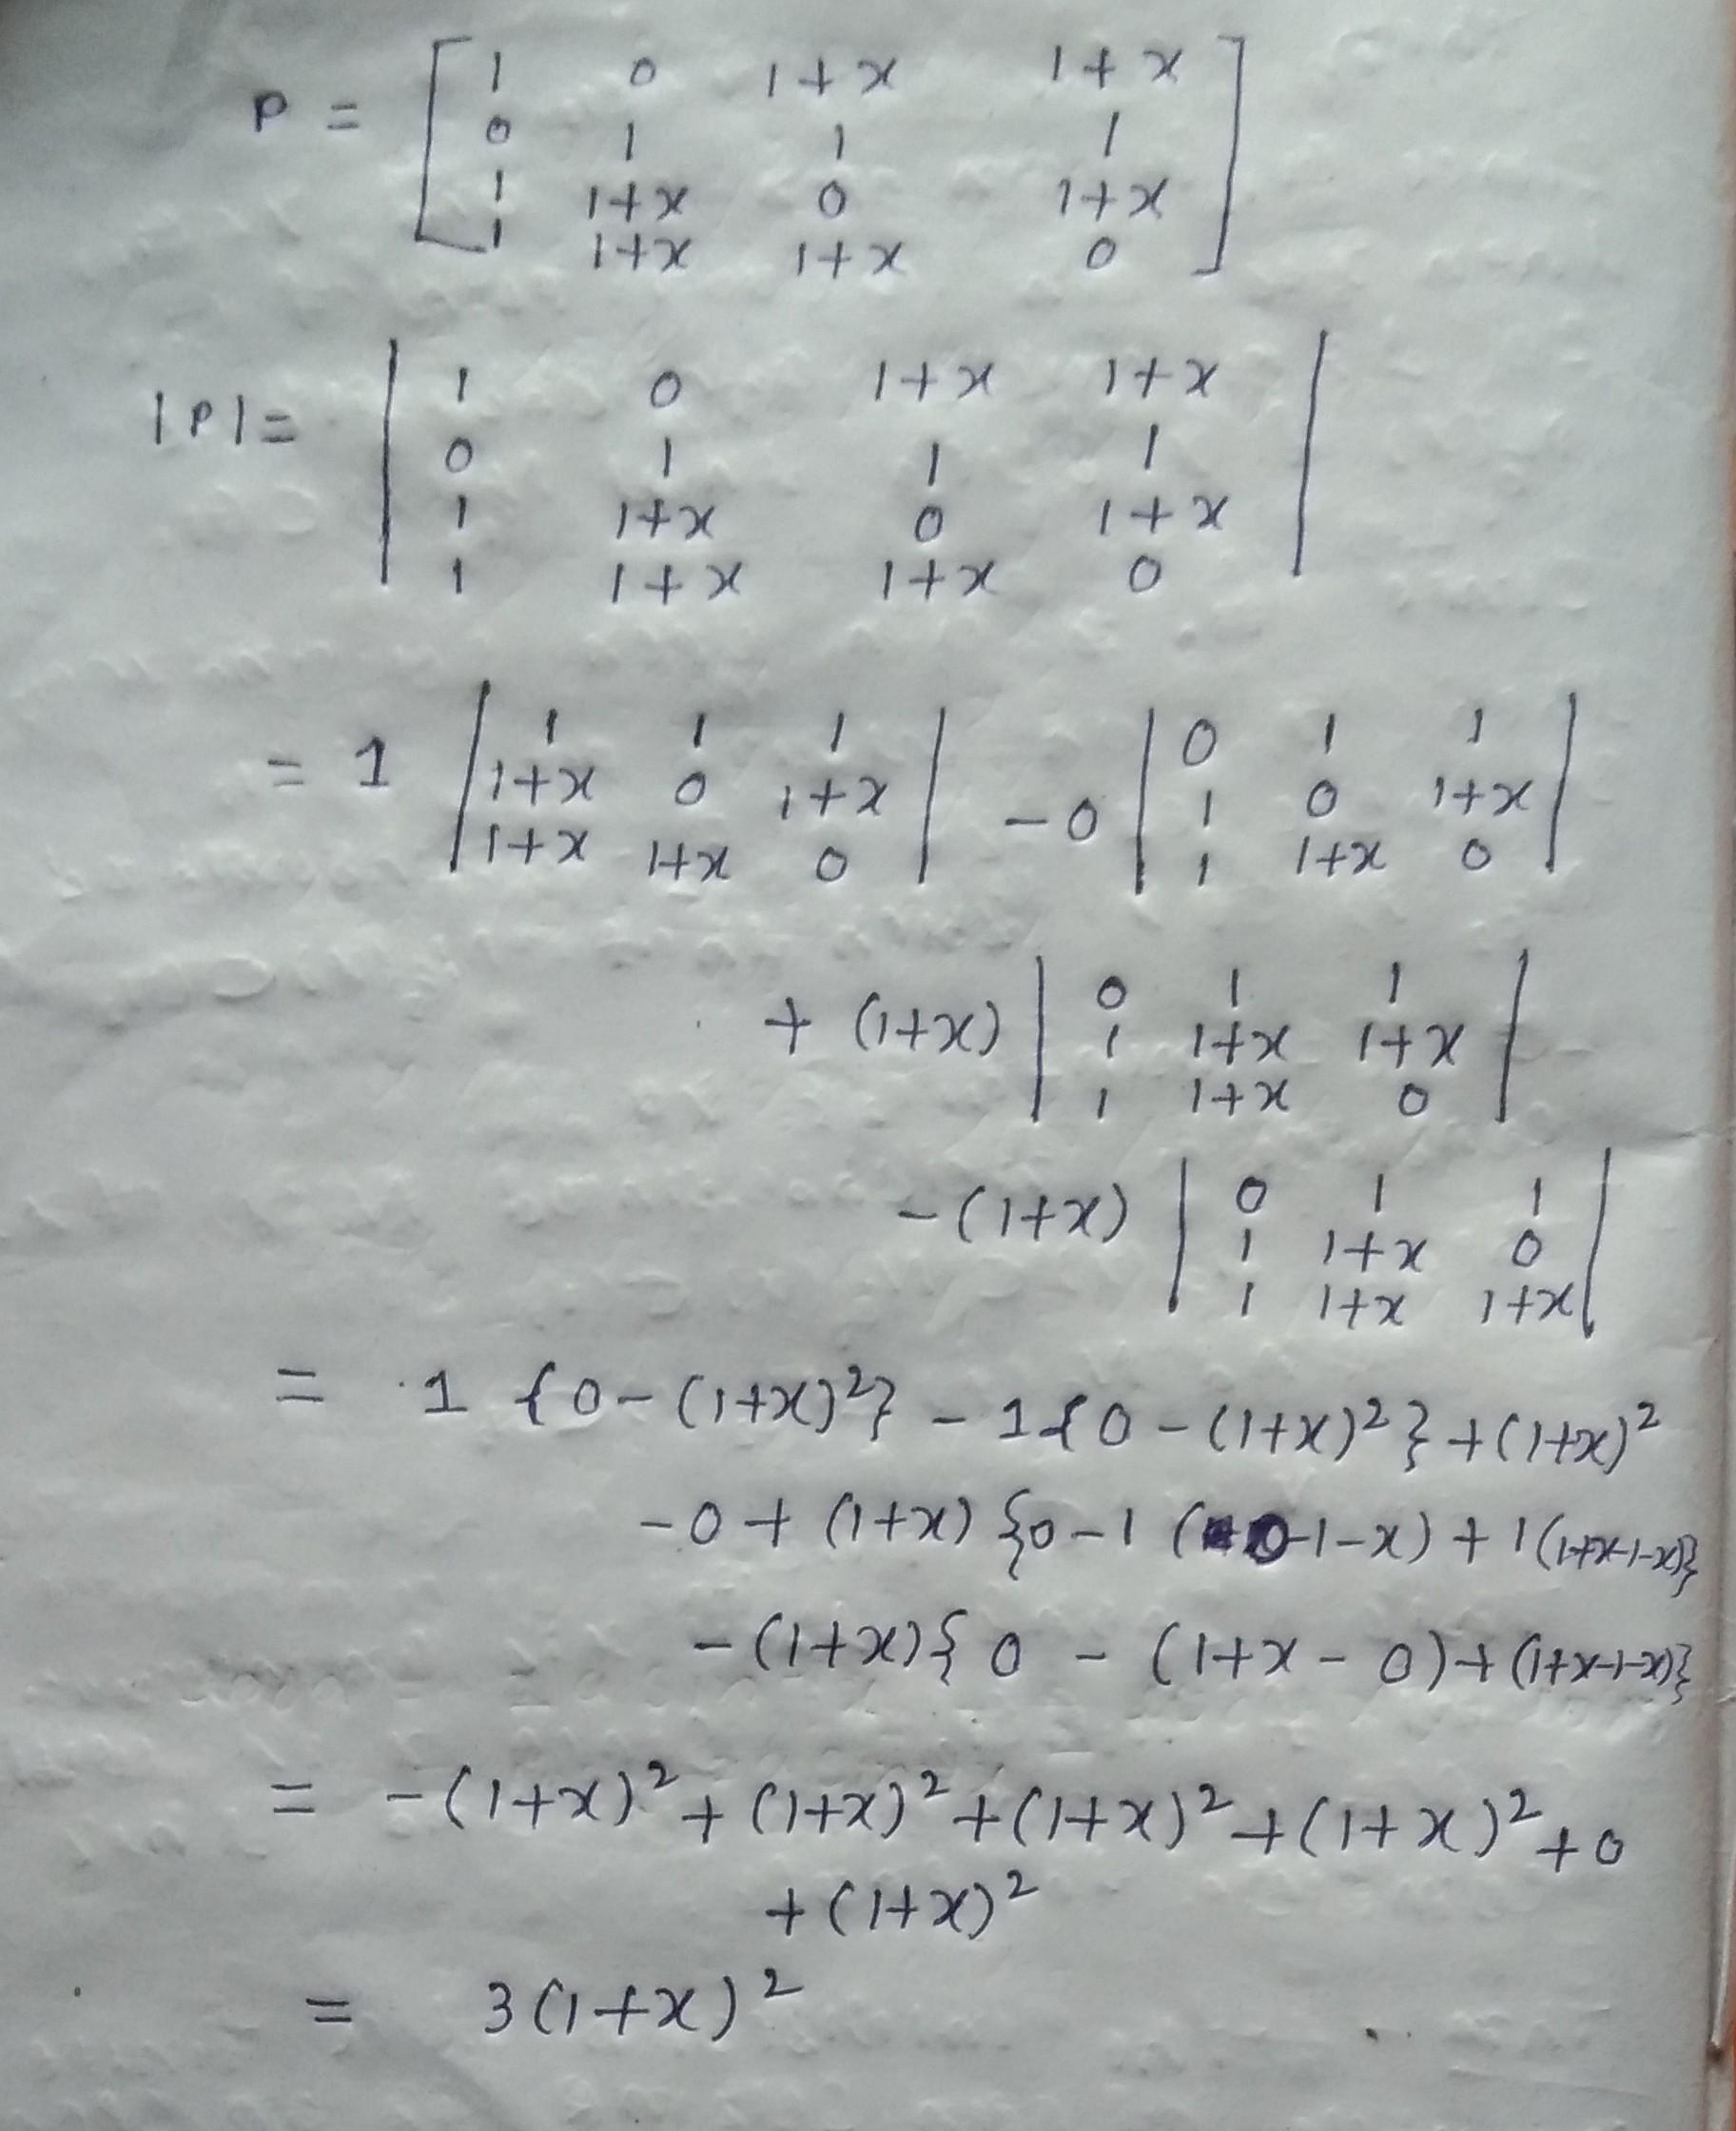 P = [ 1 0 1+x 1+x
0 1 1 1
1 1+x 0 1+x
1 1+x 1+x 0 ]
|P| = | 1 0 1+x 1+x
0 1 1 1
1 1+x 0 1+x
1 1+x 1+x 0 |
= 1 | 1 1 1 | - 0 | 0 1 1 |
| 1+x 0 1+x | | 1 0 1+x |
| 1+x 1+x 0 | | 1 1+x 0 |
+ (1+x) | 0 1 1 |
| 1 1+x 1+x |
| 1 1+x 0 |
- (1+x) | 0 1 1 |
| 1 1+x 0 |
| 1 1+x 1+x |
= 1 {0 - (1+x)²} - 1{0 - (1+x)²} + (1+x)²
- 0 + (1+x) {0 - 1 (0-1-x) + 1(1+x-1-x)}
- (1+x){0 - (1+x - 0) + (1+x-1-x)}
= -(1+x)² + (1+x)² + (1+x)² + (1+x)² + 0
+ (1+x)²
= 3(1+x)²